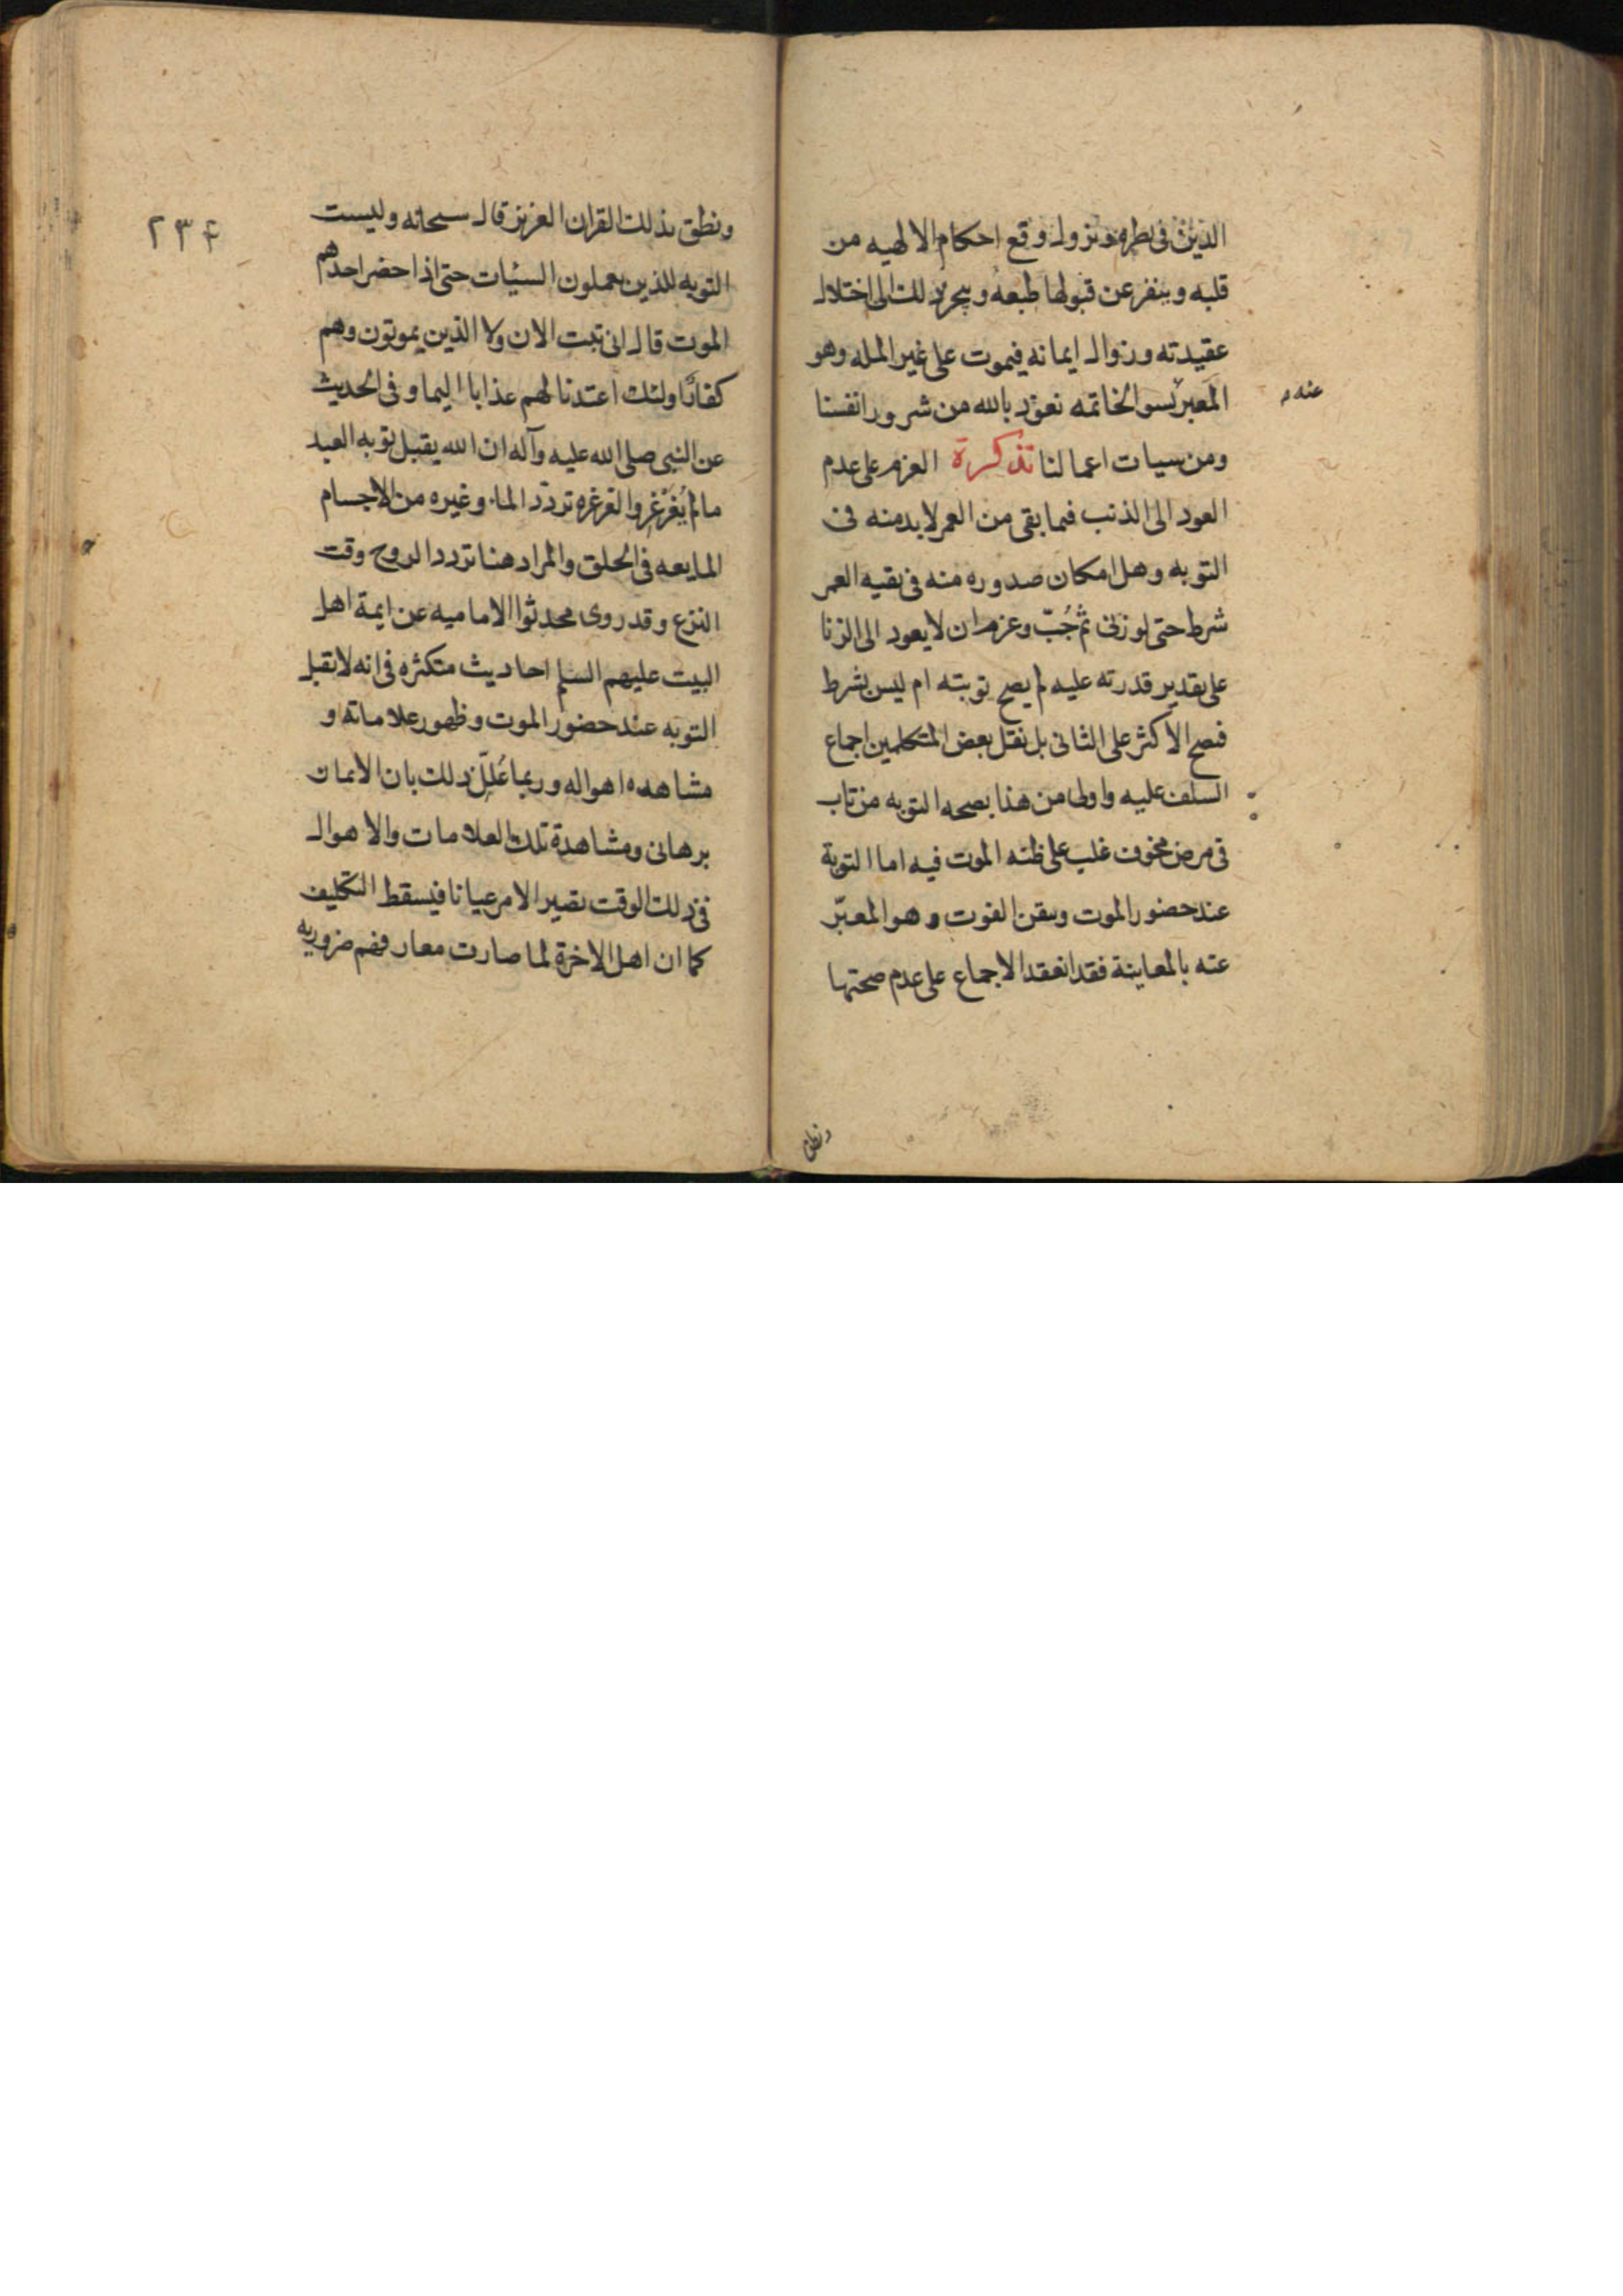 الدين فى نظره ويزول وقع احكام الالهيه من
قلبه وينفر عن قبولها طبعه وينجر ذلك الى اختلال
عقيدته وزوال ايمانه فيموت على غير الملة وهو
المعبر بسو الخاتمه نعوذ بالله من شرور انفسنا
عنه
ومن سيات اعمالنا تذكرة العزم على عدم
العود الى الذنب فيما بقى من العمر لابد منه فى
التوبه وهل امكان صدوره منه فى بقيه العمر
شرط حتى لو زنى ثم جُبّ وعزم ان لا يعود الى الزنا
على تقدير قدرته عليه لم يصح توبته ام ليس بشرط
فتصح الاكثر على الثانى بل نقل بعض المتكلمين اجماع
السلف عليه واولى من هذا بصحه التوبه من تاب
فى مرض مخوف غلب على ظنه الموت فيه اما التوبة
عند حضور الموت وتيقن الفوت وهو المعبّر
عنه بالمعاينة فقد انعقد الاجماع على عدم صحتها
ونطق
٢٣٤
ونطق بذلك القران العزيز قال سبحانه وليست
التوبه للذين يعملون السيئات حتى اذا حضر احدهم
الموت قال انى تبت الان ولا الذين يموتون وهم
كفار اولئك اعتدنا لهم عذابا اليما وفى الحديث
عن النبى صلى الله عليه وآله ان الله يقبل توبه العبد
مالم يُغَرْغِر والغرغره تردّد الماء وغيره من الاجسام
المايعه فى الحلق والمراد هنا تردد الروح وقت
النزع وقد روى محدثوا الاماميه عن ايمة اهل
البيت عليهم السلم احاديث متكثره فى انه لا تقبل
التوبه عند حضور الموت وظهور علاماته و
مشاهده اهواله وربما عُلِّل ذلك بان الايمان
برهانى ومشاهدة تلك العلامات والاهوال
فى ذلك الوقت يصير الامر عيانا فيسقط التكليف
كما ان اهل الاخرة لما صارت معارفهم ضروريه